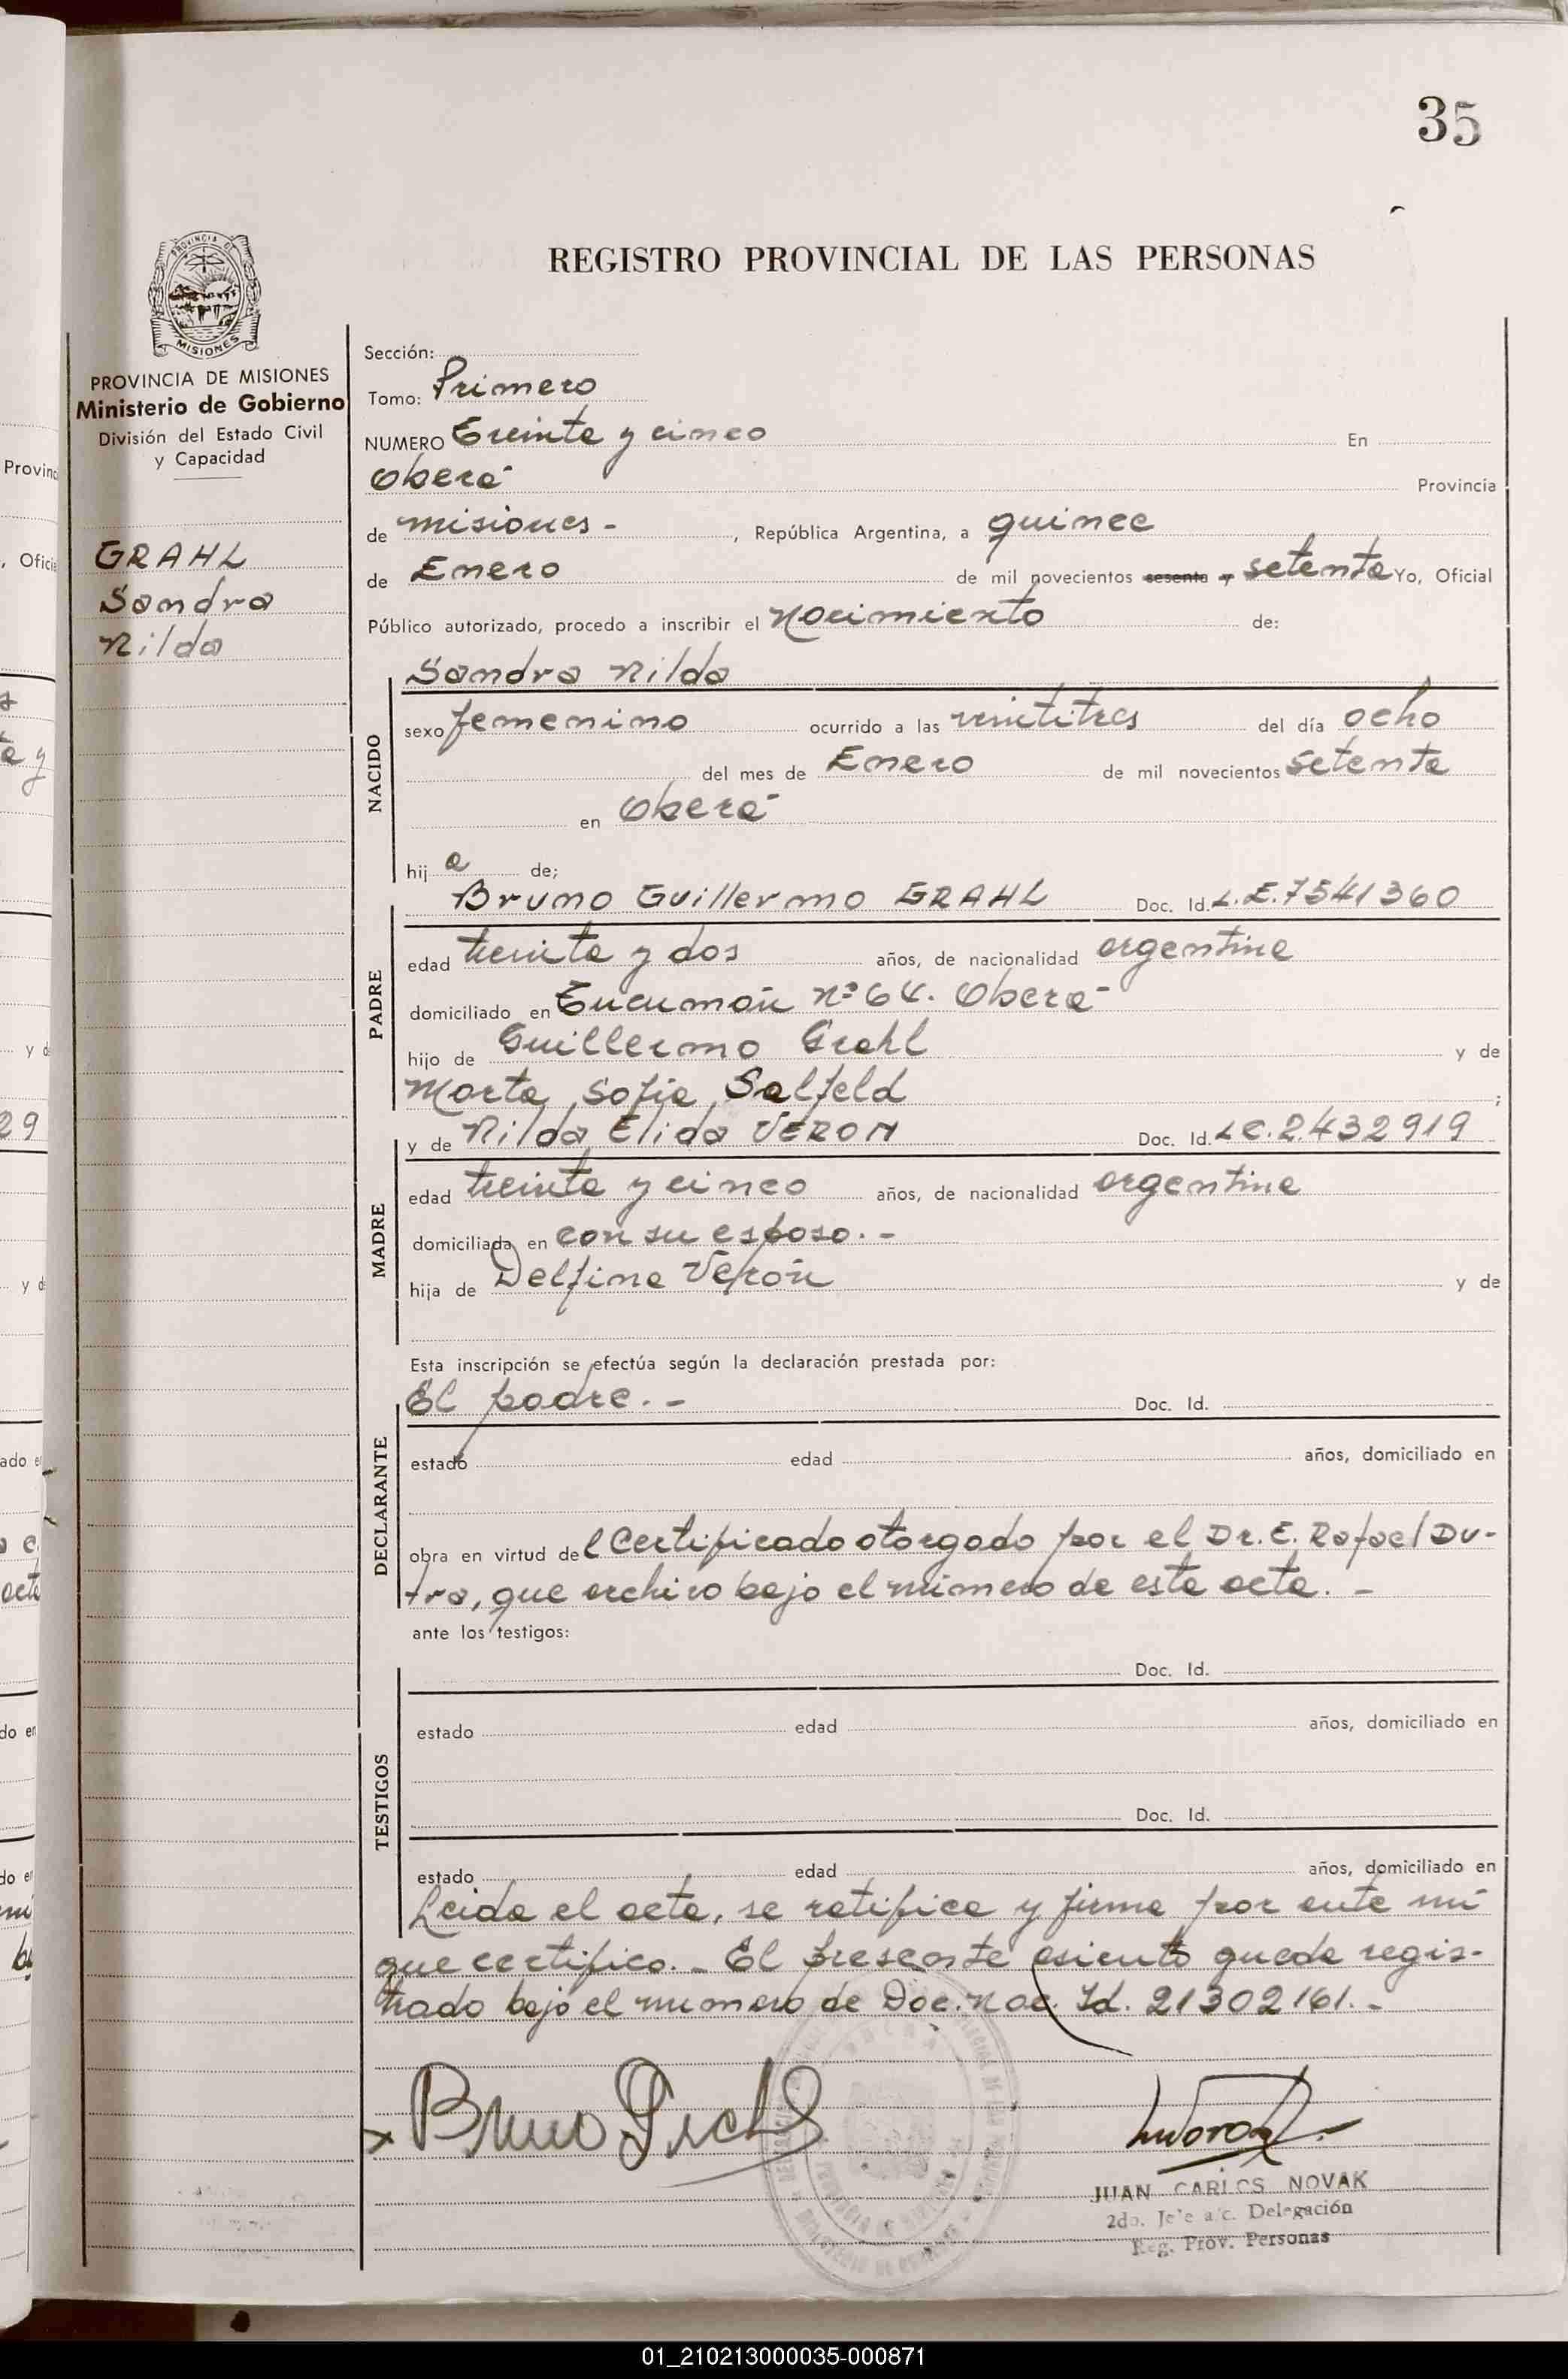 35
PROVINCIA DE
MISIONES
PROVINCIA DE MISIONES
Ministerio de Gobierno
División del Estado Civil
y Capacidad
GRAHL
Sandra
Nilda
REGISTRO PROVINCIAL DE LAS PERSONAS
Sección:
Tomo: Primero
NUMERO Treinta y cinco En
Oberá Provincia
de Misiones - , República Argentina, a quince
de Enero de mil novecientos sesenta y setenta Yo, Oficial
Público autorizado, procedo a inscribir el Nacimiento de:
Sandra Nilda
NACIDO
sexo femenino ocurrido a las veintitres del día ocho
del mes de Enero de mil novecientos setenta
en Oberá
hij a de;
Bruno Guillermo GRAHL Doc. Id. L.E.7541360
PADRE
edad treinta y dos años, de nacionalidad argentina
domiciliado en Tucumán Nº 64. Oberá
hijo de Guillermo Grahl y de
Marta Sofia Salfeld ;
y de Nilda Elida VERON Doc. Id. LC.2432919
MADRE
edad treinta y cinco años, de nacionalidad argentina
domiciliada en con su esposo. -
hija de Delfina Verón y de
Esta inscripción se efectúa según la declaración prestada por:
El padre. - Doc. Id.
DECLARANTE
estado edad años, domiciliado en
obra en virtud de l Certificado otorgado por el Dr. E. Rafael Du-
tra, que archivo bajo el número de esta acta. -
ante los testigos:
Doc. Id.
TESTIGOS
estado edad años, domiciliado en
Doc. Id.
estado edad años, domiciliado en
Leida el acta, se ratifica y firma por ante mí
que certifico. - El presente asiento queda regis-
trado bajo el número de Doc. Nac. Id. 21302161. -
Bruno Grahl
JUAN CARLOS NOVAK
2do. Jefe a/c. Delegación
Reg. Prov. Personas
01_210213000035-000871